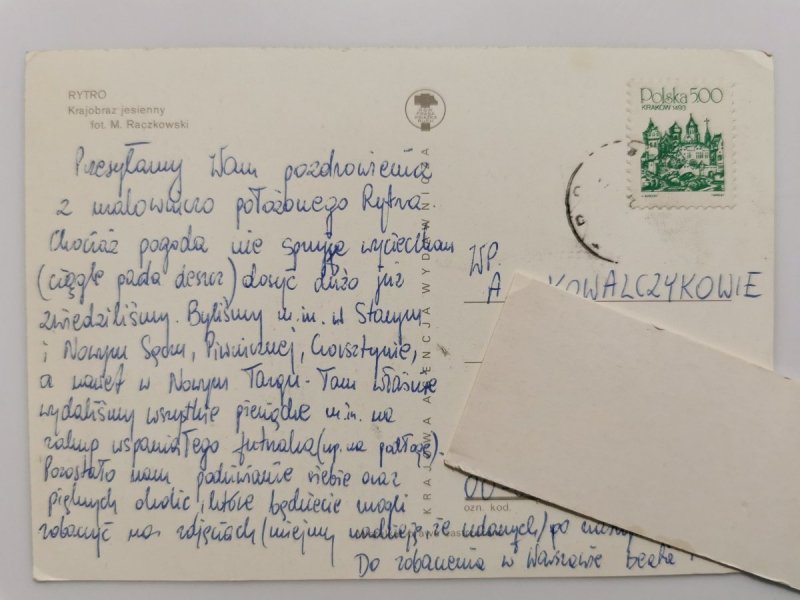 RYTRO
Krajobraz jesienny
fot. M. Raczkowski
Polska 500
KRAKÓW 1493
Przesyłamy Wam pozdrowienia
z malowniczo położonego Rytra.
Chociaż pogoda nie sprzyja wycieczkom
(ciągle pada deszcz) dosyć dużo już
zwiedziliśmy. Byliśmy m.in. w Starym
i Nowym Sączu, Piwnicznej, Czorsztynie,
a nawet w Nowym Targu. Tam właśnie
wydaliśmy wszystkie pieniądze m.in. na
zakup wspaniałego futrzaka (np. na podłogę).
Pozostało nam podziwianie siebie oraz
pięknych okolic, które będziecie mogli
zobaczyć na zdjęciach (miejmy nadzieję, że udanych) po
Do zobaczenia w Warszawie Beata
KRAJOWA AGENCJA WYDAWNICZA
WP.
A KOWALCZYKOWIE
00
ozn. kod.